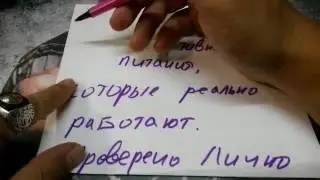 питания,
которые реально
работают.
Проверено Лично